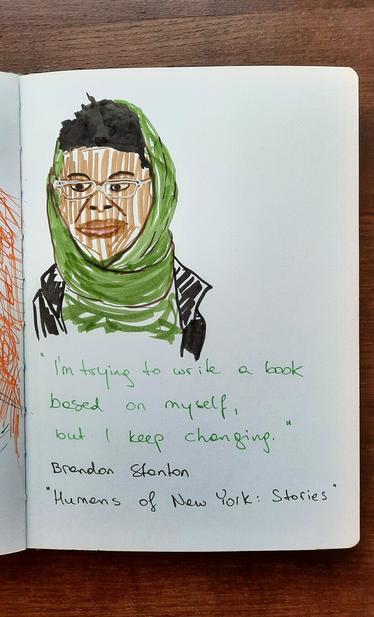 "I'm trying to write a book
based on myself,
but I keep changing."
Brandon Stanton
"Humans of New York: Stories"